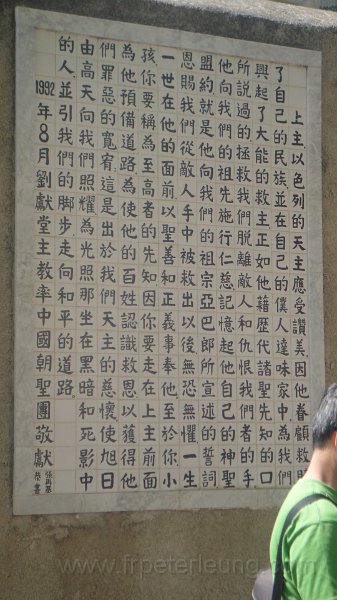 上主,以色列的天主應受讚美因他眷顧救贖
了自己的民族,並在自己的僕人達味家中為我們
興起了大能的救主正如他藉歷代諸聖先知的口
所說過的拯救我們脫離敵人和仇恨我們者的手
他向我們的祖先施行仁慈記憶起他自己的神聖
盟約就是他向我們的祖宗亞巴郎所宣述的誓詞
恩賜我們從敵人手中被救出以後無恐無懼一生
一世在他的面前以聖善和正義事奉他至於你小
孩你要稱為至高者的先知因你要走在上主前面
為他預備道路為使他的百姓認識救恩以獲得他
們罪惡的寬宥這是出於我們天主的慈懷使旭日
由高天向我們照耀為光照那坐在黑暗和死影中
的人並引我們的脚步走向和平的道路。
1992年8月劉獻堂主教率中國朝聖團敬獻
恭書
www.frpeterleung.com